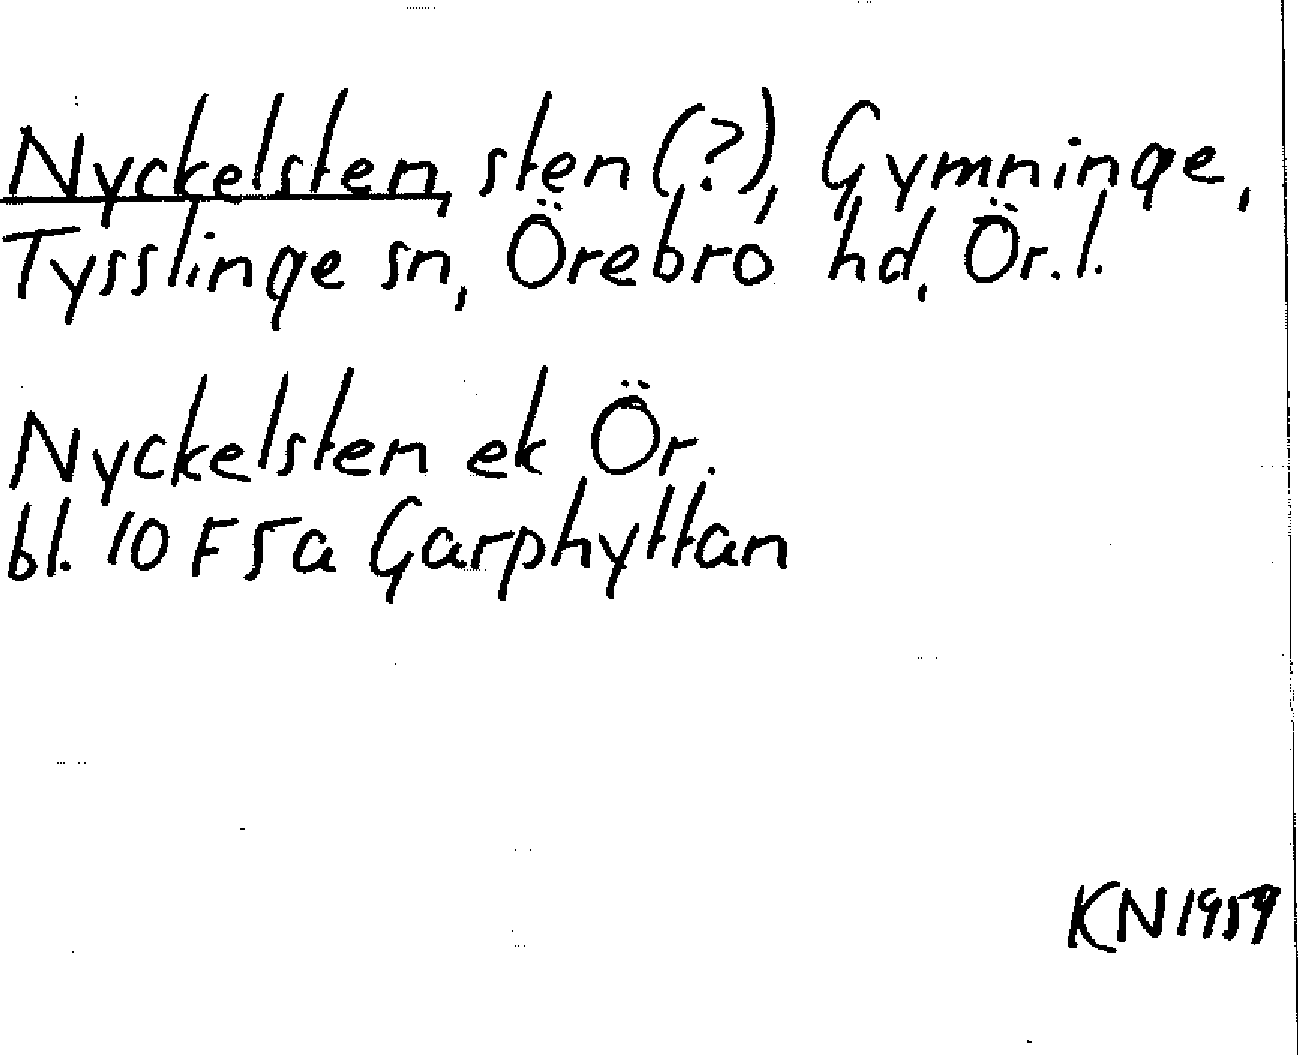 Nyckelsten, sten (?), Gymninge,
Tysslinge sn, Örebro hd, Ör. l.
Nyckelsten ek Ör.
bl. 10 F 5a Garphyttan
KN 1959